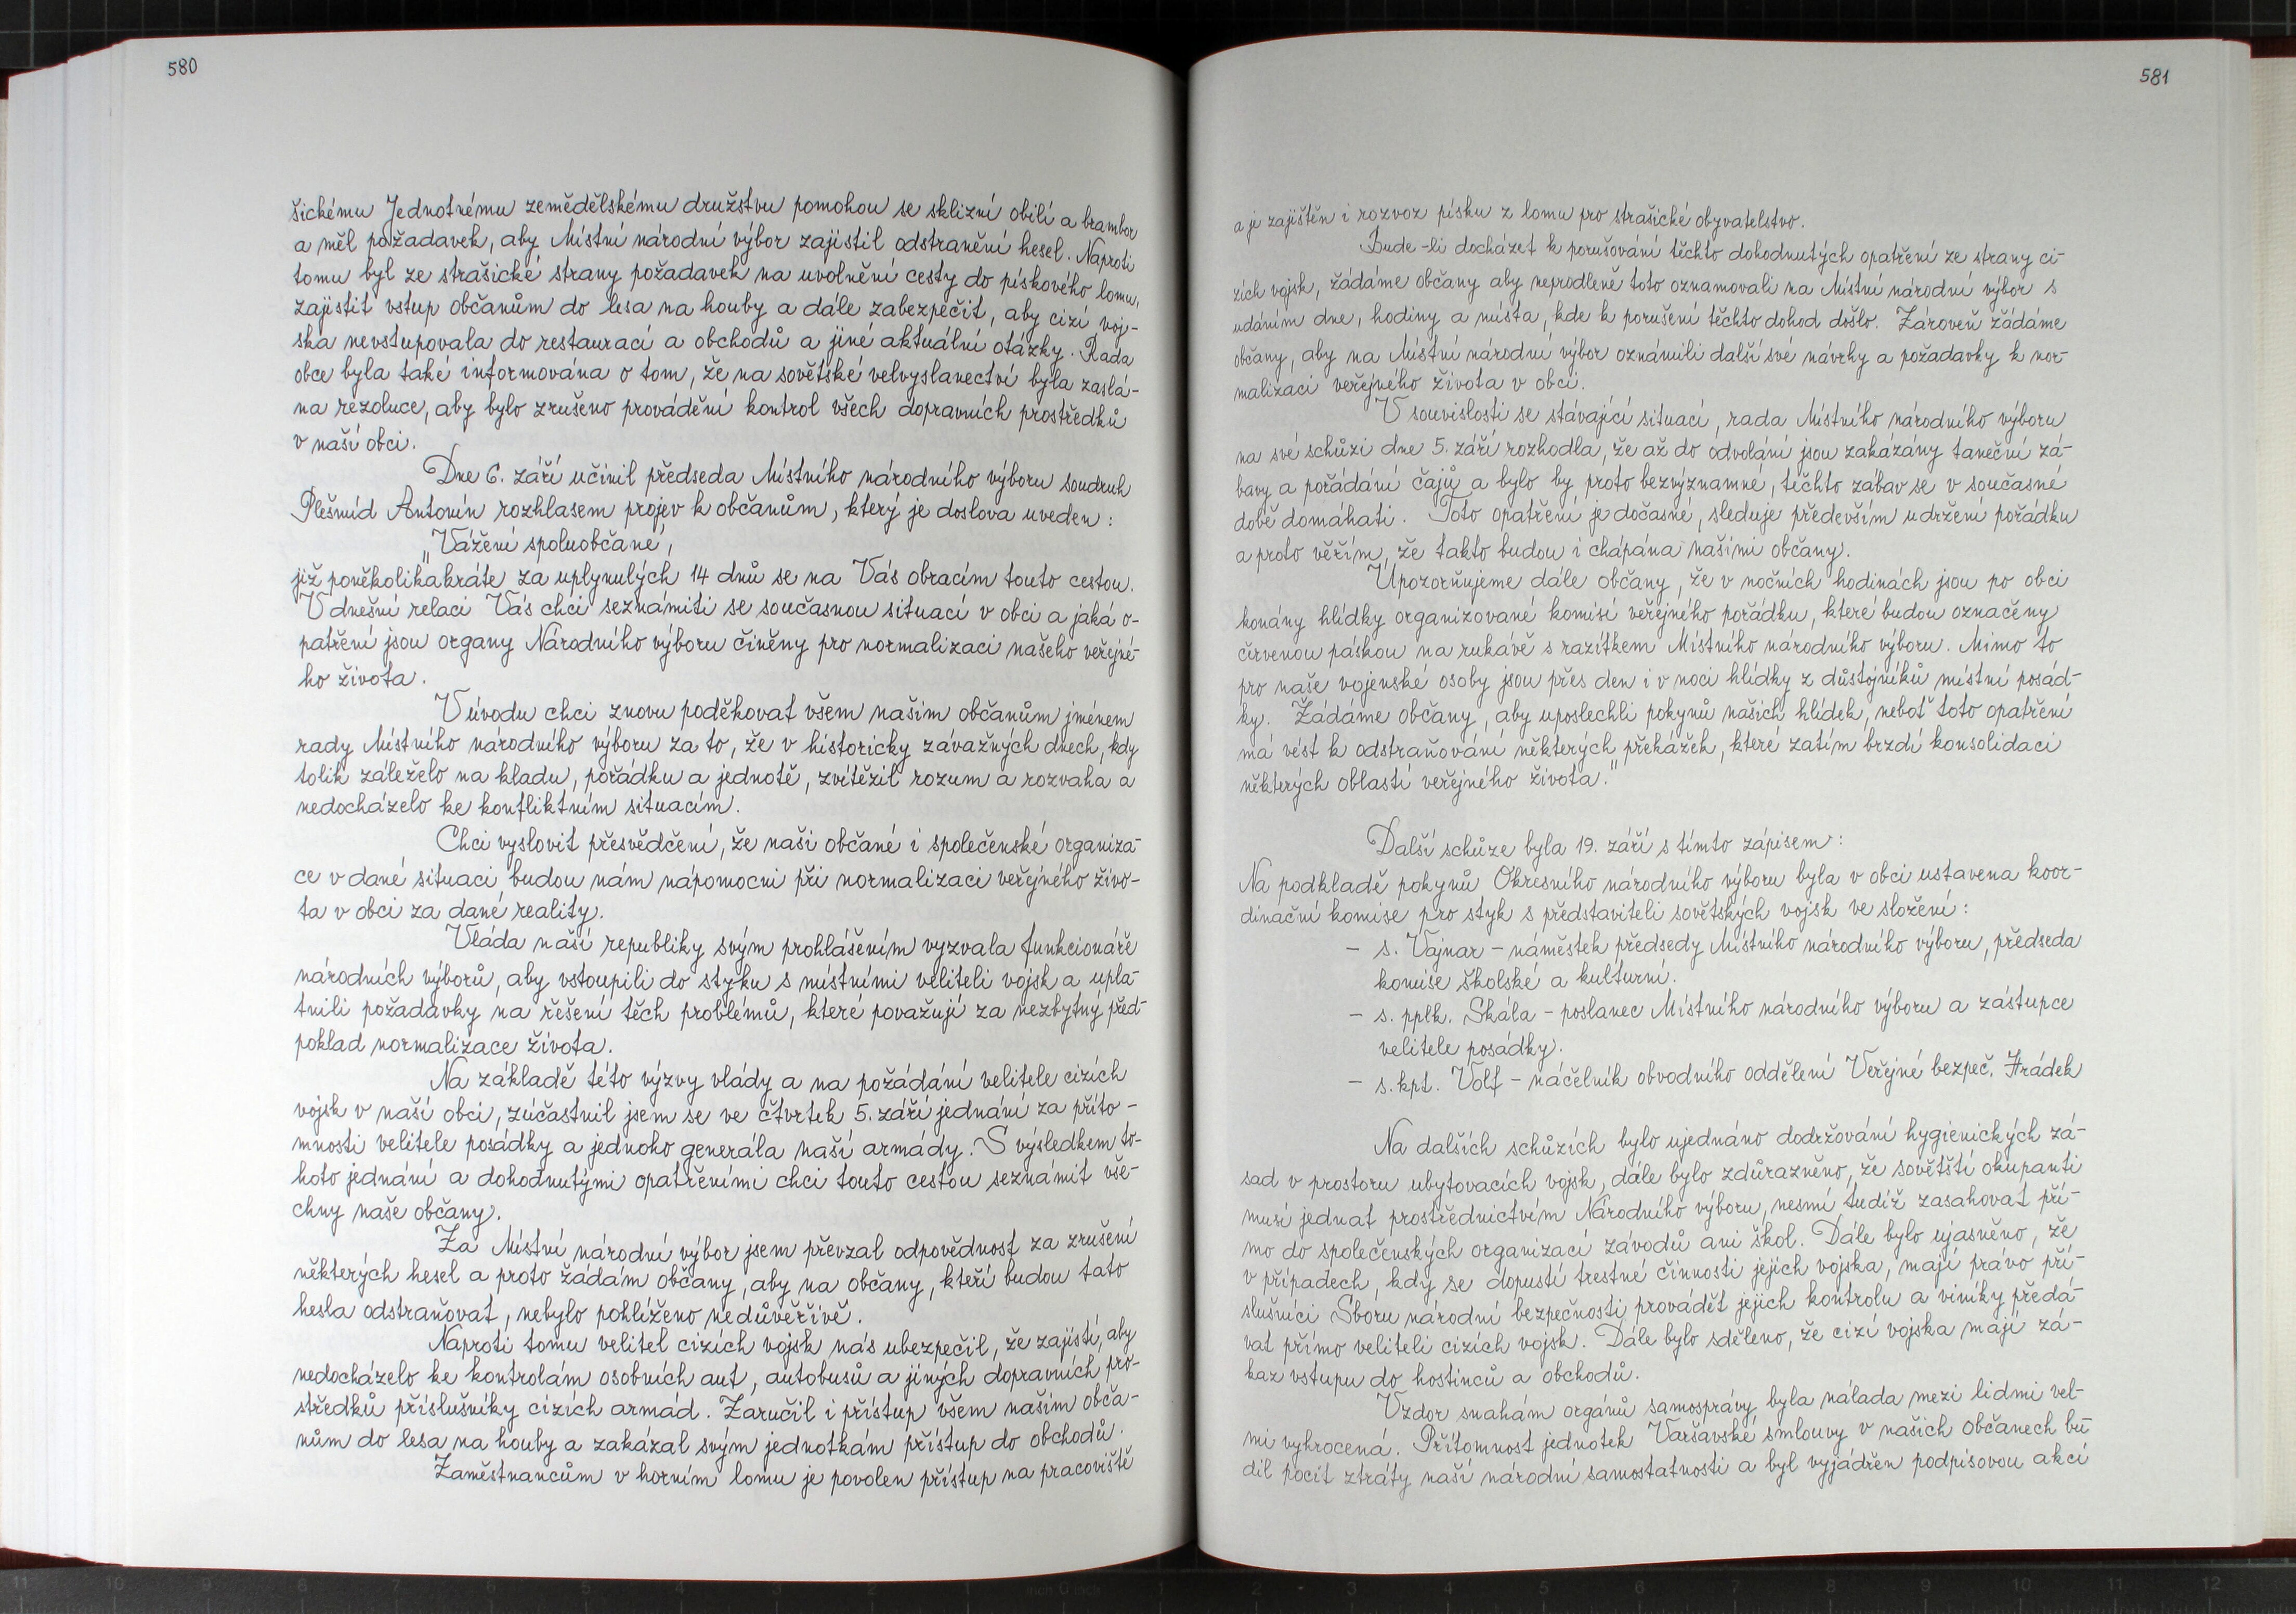 580
šickému Jednotnému zemědělskému družstvu pomohou se sklizní obilí a brambor
a měl požadavek, aby Místní národní výbor zajistil odstranění hesel. Naproti
tomu byl ze strašické strany požadavek na uvolnění cesty do pískového lomu,
zajistit vstup občanům do lesa na houby a dále zabezpečit, aby cizí voj-
ska nevstupovala do restaurací a obchodů a jiné aktuální otázky. Rada
obce byla také informována o tom, že na sovětské velvyslanectví byla zaslá-
na rezoluce, aby bylo zrušeno provádění kontrol všech dopravních prostředků
v naší obci.
Dne 6. září učinil předseda Místního národního výboru soudruh
Plešmíd Antonín rozhlasem projev k občanům, který je doslova uveden:
„Vážení spoluobčané,
již poněkolikakráte za uplynulých 14 dnů se na Vás obracím touto cestou.
V dnešní relaci Vás chci seznámiti se současnou situací v obci a jaká o-
patření jsou organy Národního výboru činěny pro normalizaci našeho veřejné-
ho života.
V úvodu chci znovu poděkovat všem našim občanům jménem
rady Místního národního výboru za to, že v historicky závažných dnech, kdy
tolik záleželo na kladu, pořádku a jednotě, zvítězil rozum a rozvaha a
nedocházelo ke konfliktním situacím.
Chci vyslovit přesvědčení, že naši občané i společenské organiza-
ce v dané situaci budou nám nápomocni při normalizaci veřejného živo-
ta v obci za dané reality.
Vláda naší republiky svým prohlášením vyzvala funkcionáře
národních výborů, aby vstoupili do styku s místními veliteli vojsk a upla-
tnili požadavky na řěšení těch problémů, které považují za nezbytný před-
poklad normalizace života.
Na základě této výzvy vlády a na požádání velitele cizích
vojsk v naší obci, zúčastnil jsem se ve čtvrtek 5. září jednání za příto-
mnosti velitele posádky a jednoho generála naší armády. S výsledkem to-
hoto jednání a dohodnutými opatřeními chci touto cestou seznámit vše-
chny naše občany.
Za Místní národní výbor jsem převzal odpovědnost za zrušení
některých hesel a proto žádám občany, aby na občany, kteří budou tato
hesla odstraňovat, nebylo pohlíženo nedůvěřivě.
Naproti tomu velitel cizích vojsk nás ubezpečil, že zajistí, aby
nedocházelo ke kontrolám osobních aut, autobusů a jiných dopravních pro-
středků příslušníky cizích armád. Zaručil i přístup všem našim obča-
nům do lesa na houby a zakázal svým jednotkám přístup do obchodů.
Zaměstnancům v horním lomu je povolen přístup na pracoviště
581
a je zajištěn i rozvoz písku z lomu pro strašické obyvatelstvo.
Bude-li docházet k porušování těchto dohodnutých opatření ze strany ci-
zích vojsk, žádáme občany aby neprodleně toto oznamovali na Místní národní výbor s
udáním dne, hodiny a místa, kde k porušení těchto dohod došlo. Zároveň žádáme
občany, aby na Místní národní výbor oznámili další své návrhy a požadavky k nor-
malizaci veřejného života v obci.
V souvislosti se stávající situací, rada Místního národního výboru
na své schůzi dne 5. září rozhodla, že až do odvolání jsou zakázány taneční zá-
bavy a pořádání čajů a bylo by proto bezvýznamné, těchto zábav se v současné
době domáhati. Toto opatření je dočasné, sleduje především udržení pořádku
a proto věřím, že takto budou i chápána našimi občany.
Upozorňujeme dále občany, že v nočních hodinách jsou po obci
konány hlídky organizované komisí veřejného pořádku, které budou označěny
červenou páskou na rukávě s razítkem Místního národního výboru. Mimo to
pro naše vojenské osoby jsou přes den i v noci hlídky z důstojníků místní posád-
ky. Žádáme občany, aby uposlechli pokynů našich hlídek, neboť toto opatření
má vést k odstraňování některých překážek, které zatím brzdí konsolidaci
některých oblastí veřejného života."
Další schůze byla 19. září s tímto zápisem:
Na podkladě pokynů Okresního národního výboru byla v obci ustavena koor-
dinační komise pro styk s představiteli sovětských vojsk ve složení:
- s. Vajnar - náměstek předsedy Místního národního výboru, předseda
komise školské a kulturní.
- s. pplk. Skála - poslanec Místního národního výboru a zástupce
velitele posádky.
- s. kpt. Volf - náčelník obvodního oddělení Veřejné bezpeč. Hrádek
Na dalších schůzích bylo ujednáno dodržování hygienických zá-
sad v prostoru ubytovacích vojsk, dále bylo zdůrazněno, že sovětští okupanti
musí jednat prostřednictvím Národního výboru, nesmí tudíž zasahovat pří-
mo do společenských organizací závodů ani škol. Dále bylo ujasněno, že
v případech, kdy se dopustí trestné činnosti jejich vojska, mají právo pří-
slušníci Sboru národní bezpečnosti provádět jejich kontrolu a viníky předá-
vat přímo veliteli cizích vojsk. Dále bylo sděleno, že cizí vojska mají zá-
kaz vstupu do hostinců a obchodů.
Vzdor snahám orgánů samosprávy byla nálada mezi lidmi vel-
mi vyhrocená. Přítomnost jednotek Varšavské smlouvy v našich občanech bu-
dil pocit ztráty naší národní samostatnosti a byl vyjádřen podpisovou akcí